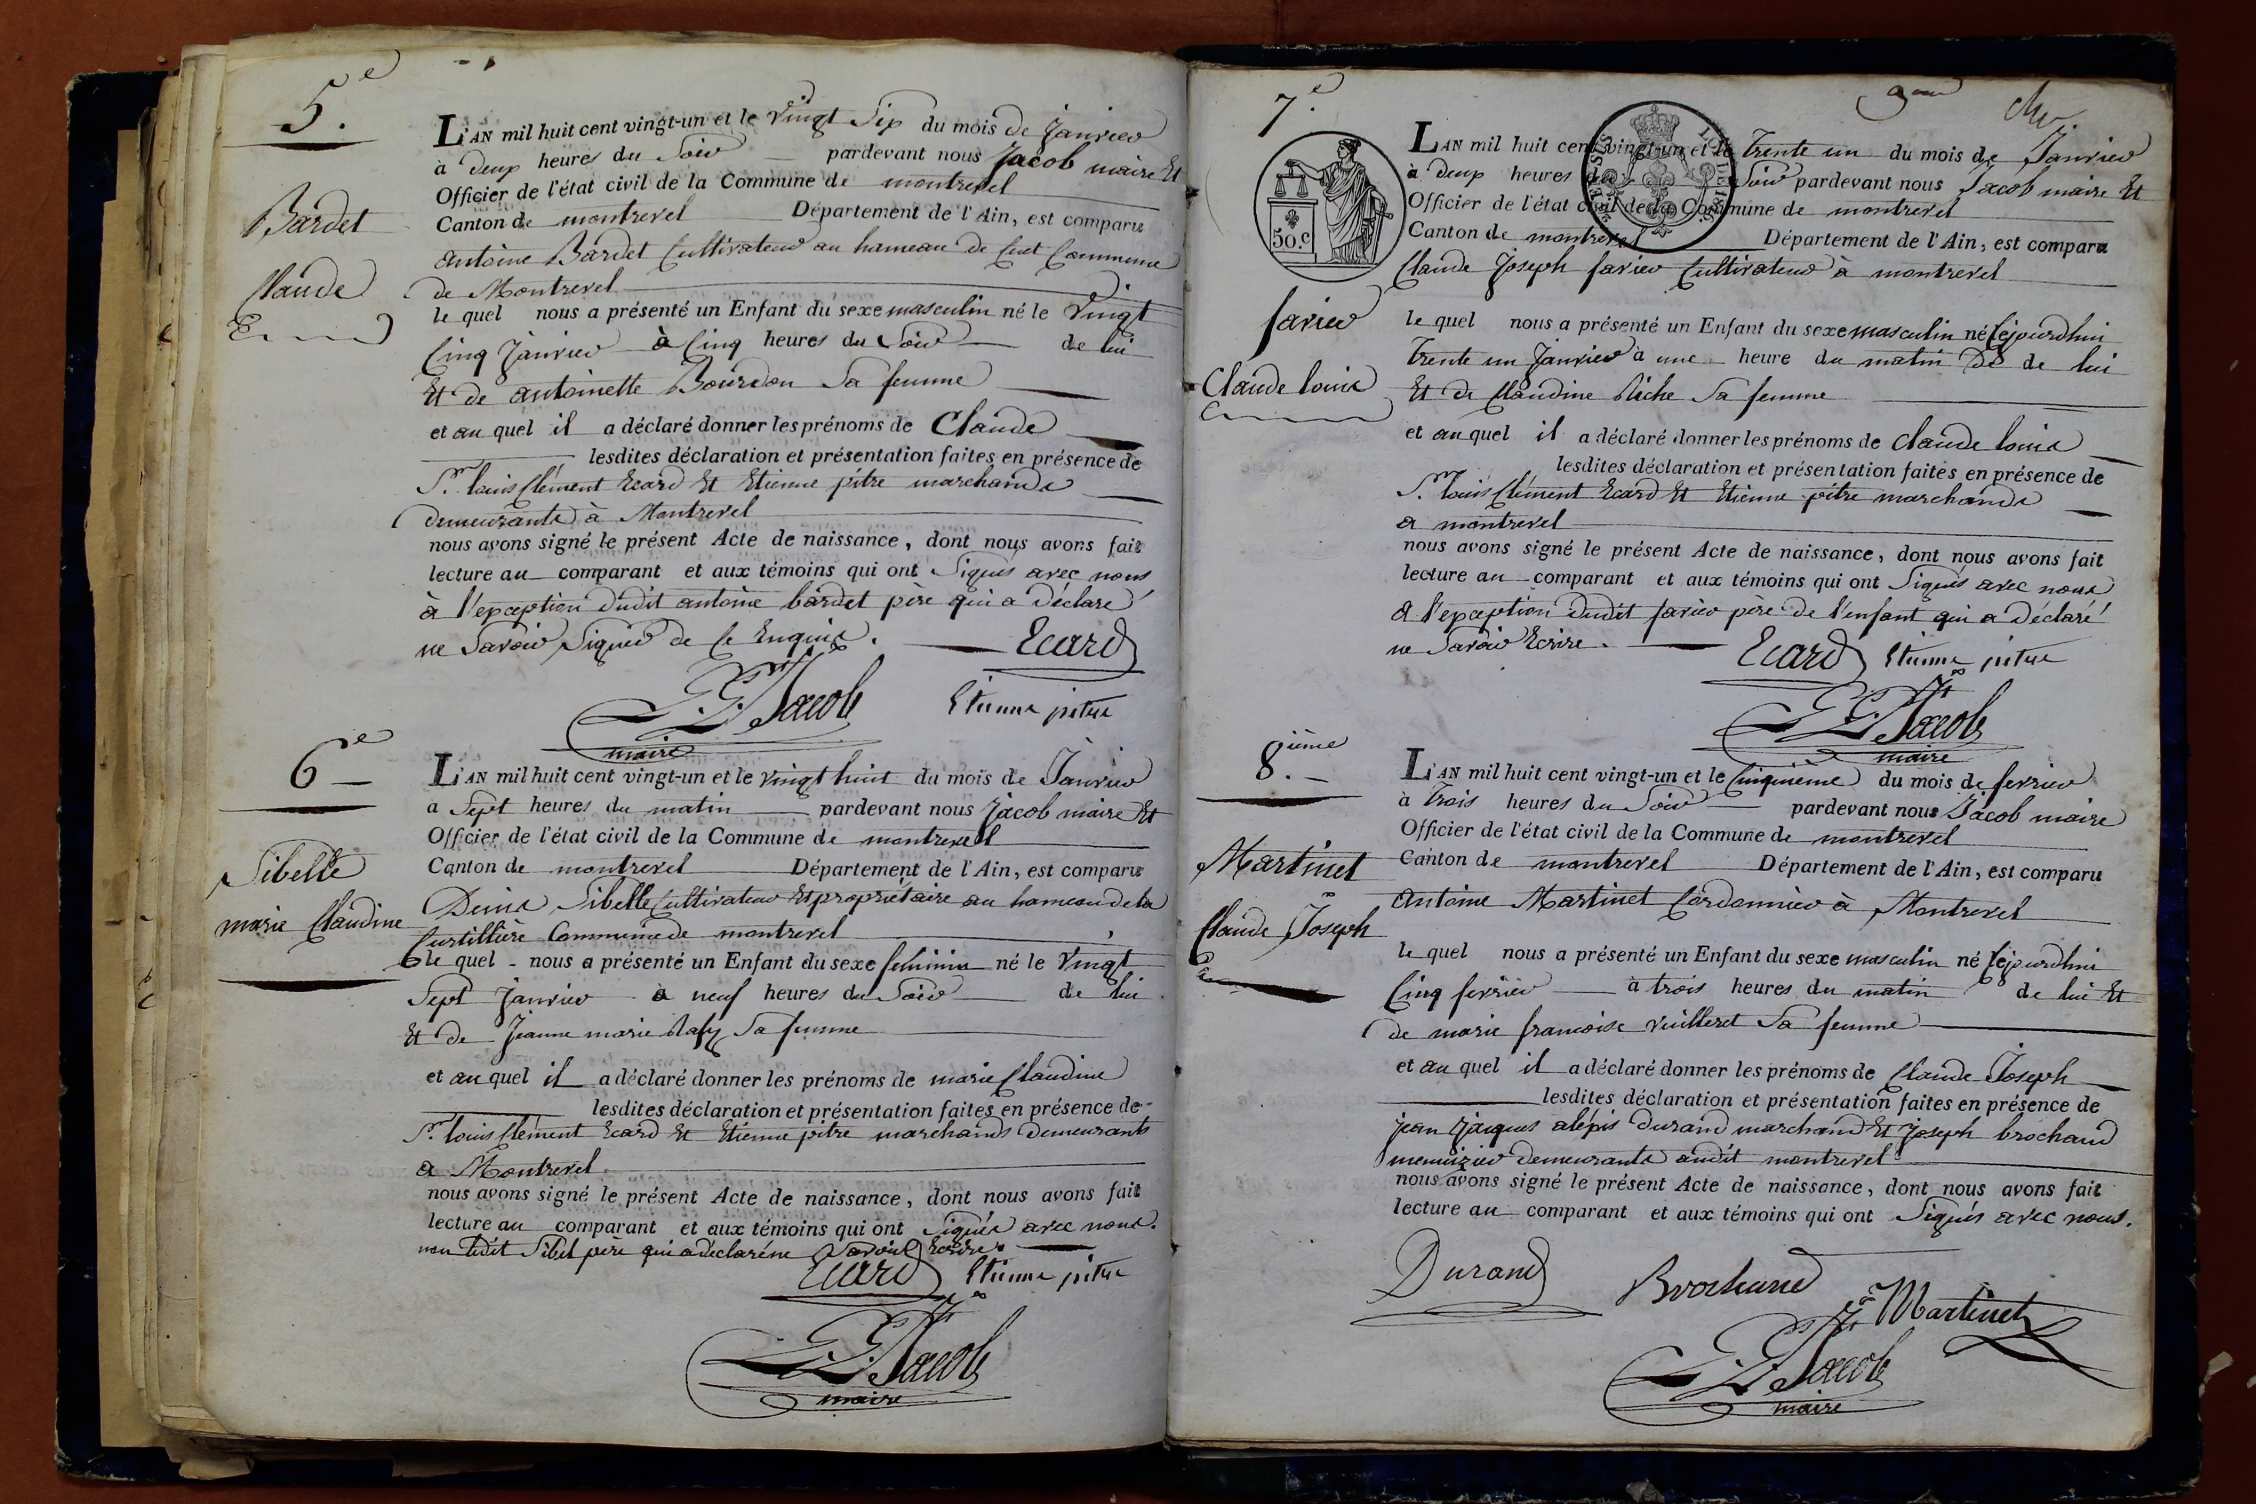 5.e
Bardet
Claude
L'AN mil huit cent vingt-un et le vingt Six du mois de Janvier
à deux heures du Soir pardevant nous Jacob maire Et
Officier de l'état civil de la Commune de montrevel
Canton de montrevel Département de l'Ain, est comparu
antoine Bardet Cultivateur au hameau de Cuet Commune
de Montrevel
le quel nous a présenté un Enfant du sexe masculin né le Vingt
Cinq Janvier à Cinq heures du Soir de lui
Et de antoinette Bourdon Sa femme
et au quel il a déclaré donner les prénoms de Claude
lesdites déclaration et présentation faites en présence de
Sr. louis Clément Ecard Et Etienne pitre marchands
demeurants à Montrevel
nous avons signé le présent Acte de naissance, dont nous avons fait
lecture au comparant et aux témoins qui ont Signés avec nous
à l'exception dudit antoine bardet père qui a Déclaré
ne Savoir Signer de Ce Enquis.
Ecard
Jacob
Etienne pitre
maire
6e
Sibelle
marie Claudine
L'AN mil huit cent vingt-un et le vingt huit du mois de Janvier
a Sept heures du matin pardevant nous Jacob maire Et
Officier de l'état civil de la Commune de montrevel
Canton de montrevel Département de l'Ain, est comparu
Denis Sibelle Cultivateur Et propriétaire au hameau de la
Curtillière Commune de montrevel
le quel nous a présenté un Enfant du sexe feminin né le Vingt
Sept Janvier à neuf heures du Soir de lui
Et de Jeanne marie Sa femme
et au quel il a déclaré donner les prénoms de marie Claudine
lesdites déclaration et présentation faites en présence de
Sr. louis Clément Ecard Et Etienne pitre marchands Demeurants
a Montrevel
nous avons signé le présent Acte de naissance, dont nous avons fait
lecture au comparant et aux témoins qui ont Signés avec nous.
non ledit Sibel père qui a déclaré ne Savoir Ecrire.
Ecard Etienne pitre
Jacob
maire
7.e
50.c
farier
Claude louis
L'AN mil huit cent vingt-un et le Trente un du mois de Janvier
à deux heures du Soir pardevant nous Jacob maire Et
Officier de l'état civil de la Commune de montrevel
Canton de montrevel Département de l'Ain, est comparu
Claude Joseph farier Cultivateur à montrevel
le quel nous a présenté un Enfant du sexe masculin né Cejourdhui
Trente un Janvier à une heure du matin De de lui
Et de Claudine Riche Sa femme
et au quel il a déclaré donner les prénoms de Claude louis
lesdites déclaration et présentation faites en présence de
Sr. louis Clément Ecard Et Etienne pitre marchands
a montrevel
nous avons signé le présent Acte de naissance, dont nous avons fait
lecture au comparant et aux témoins qui ont Signés avec nous
a l'exception dudit farier père de l'enfant qui a Déclaré
ne Savoir Ecrire.
Ecard Etienne pitre
Jacob
maire
8.ième
Martinet
Claude Joseph
L'AN mil huit cent vingt-un et le Cinquième du mois de fevrier
à Trois heures du Soir pardevant nous Jacob maire
Officier de l'état civil de la Commune de montrevel
Canton de montrevel Département de l'Ain, est comparu
Antoine Martinet Cordonnier à Montrevel
le quel nous a présenté un Enfant du sexe masculin né Cejourdhui
Cinq fevrier à trois heures du matin de lui Et
de marie francoise vuilleret Sa femme
et au quel il a déclaré donner les prénoms de Claude Joseph
lesdites déclaration et présentation faites en présence de
jean jacques alexis Durand marchand Et Joseph brochand
menuizier demeurants audit montrevel
nous avons signé le présent Acte de naissance, dont nous avons fait
lecture au comparant et aux témoins qui ont Signés avec nous.
Durand
Brochand
Martinet
Jacob
maire